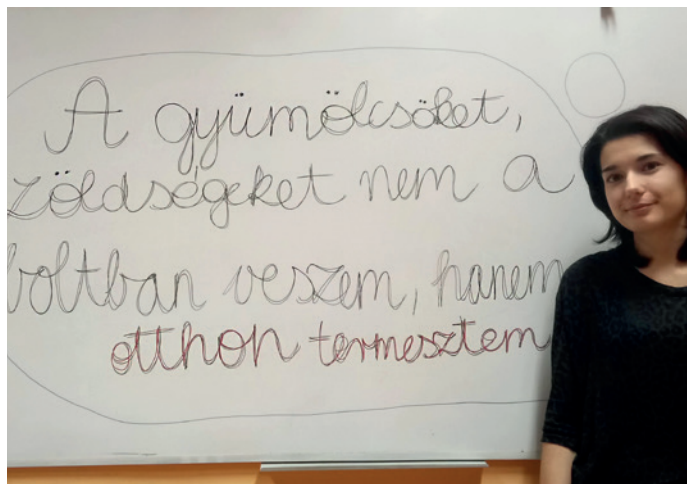 A gyümölcsöket,
zöldségeket nem a
boltban veszem, hanem
otthon termesztem